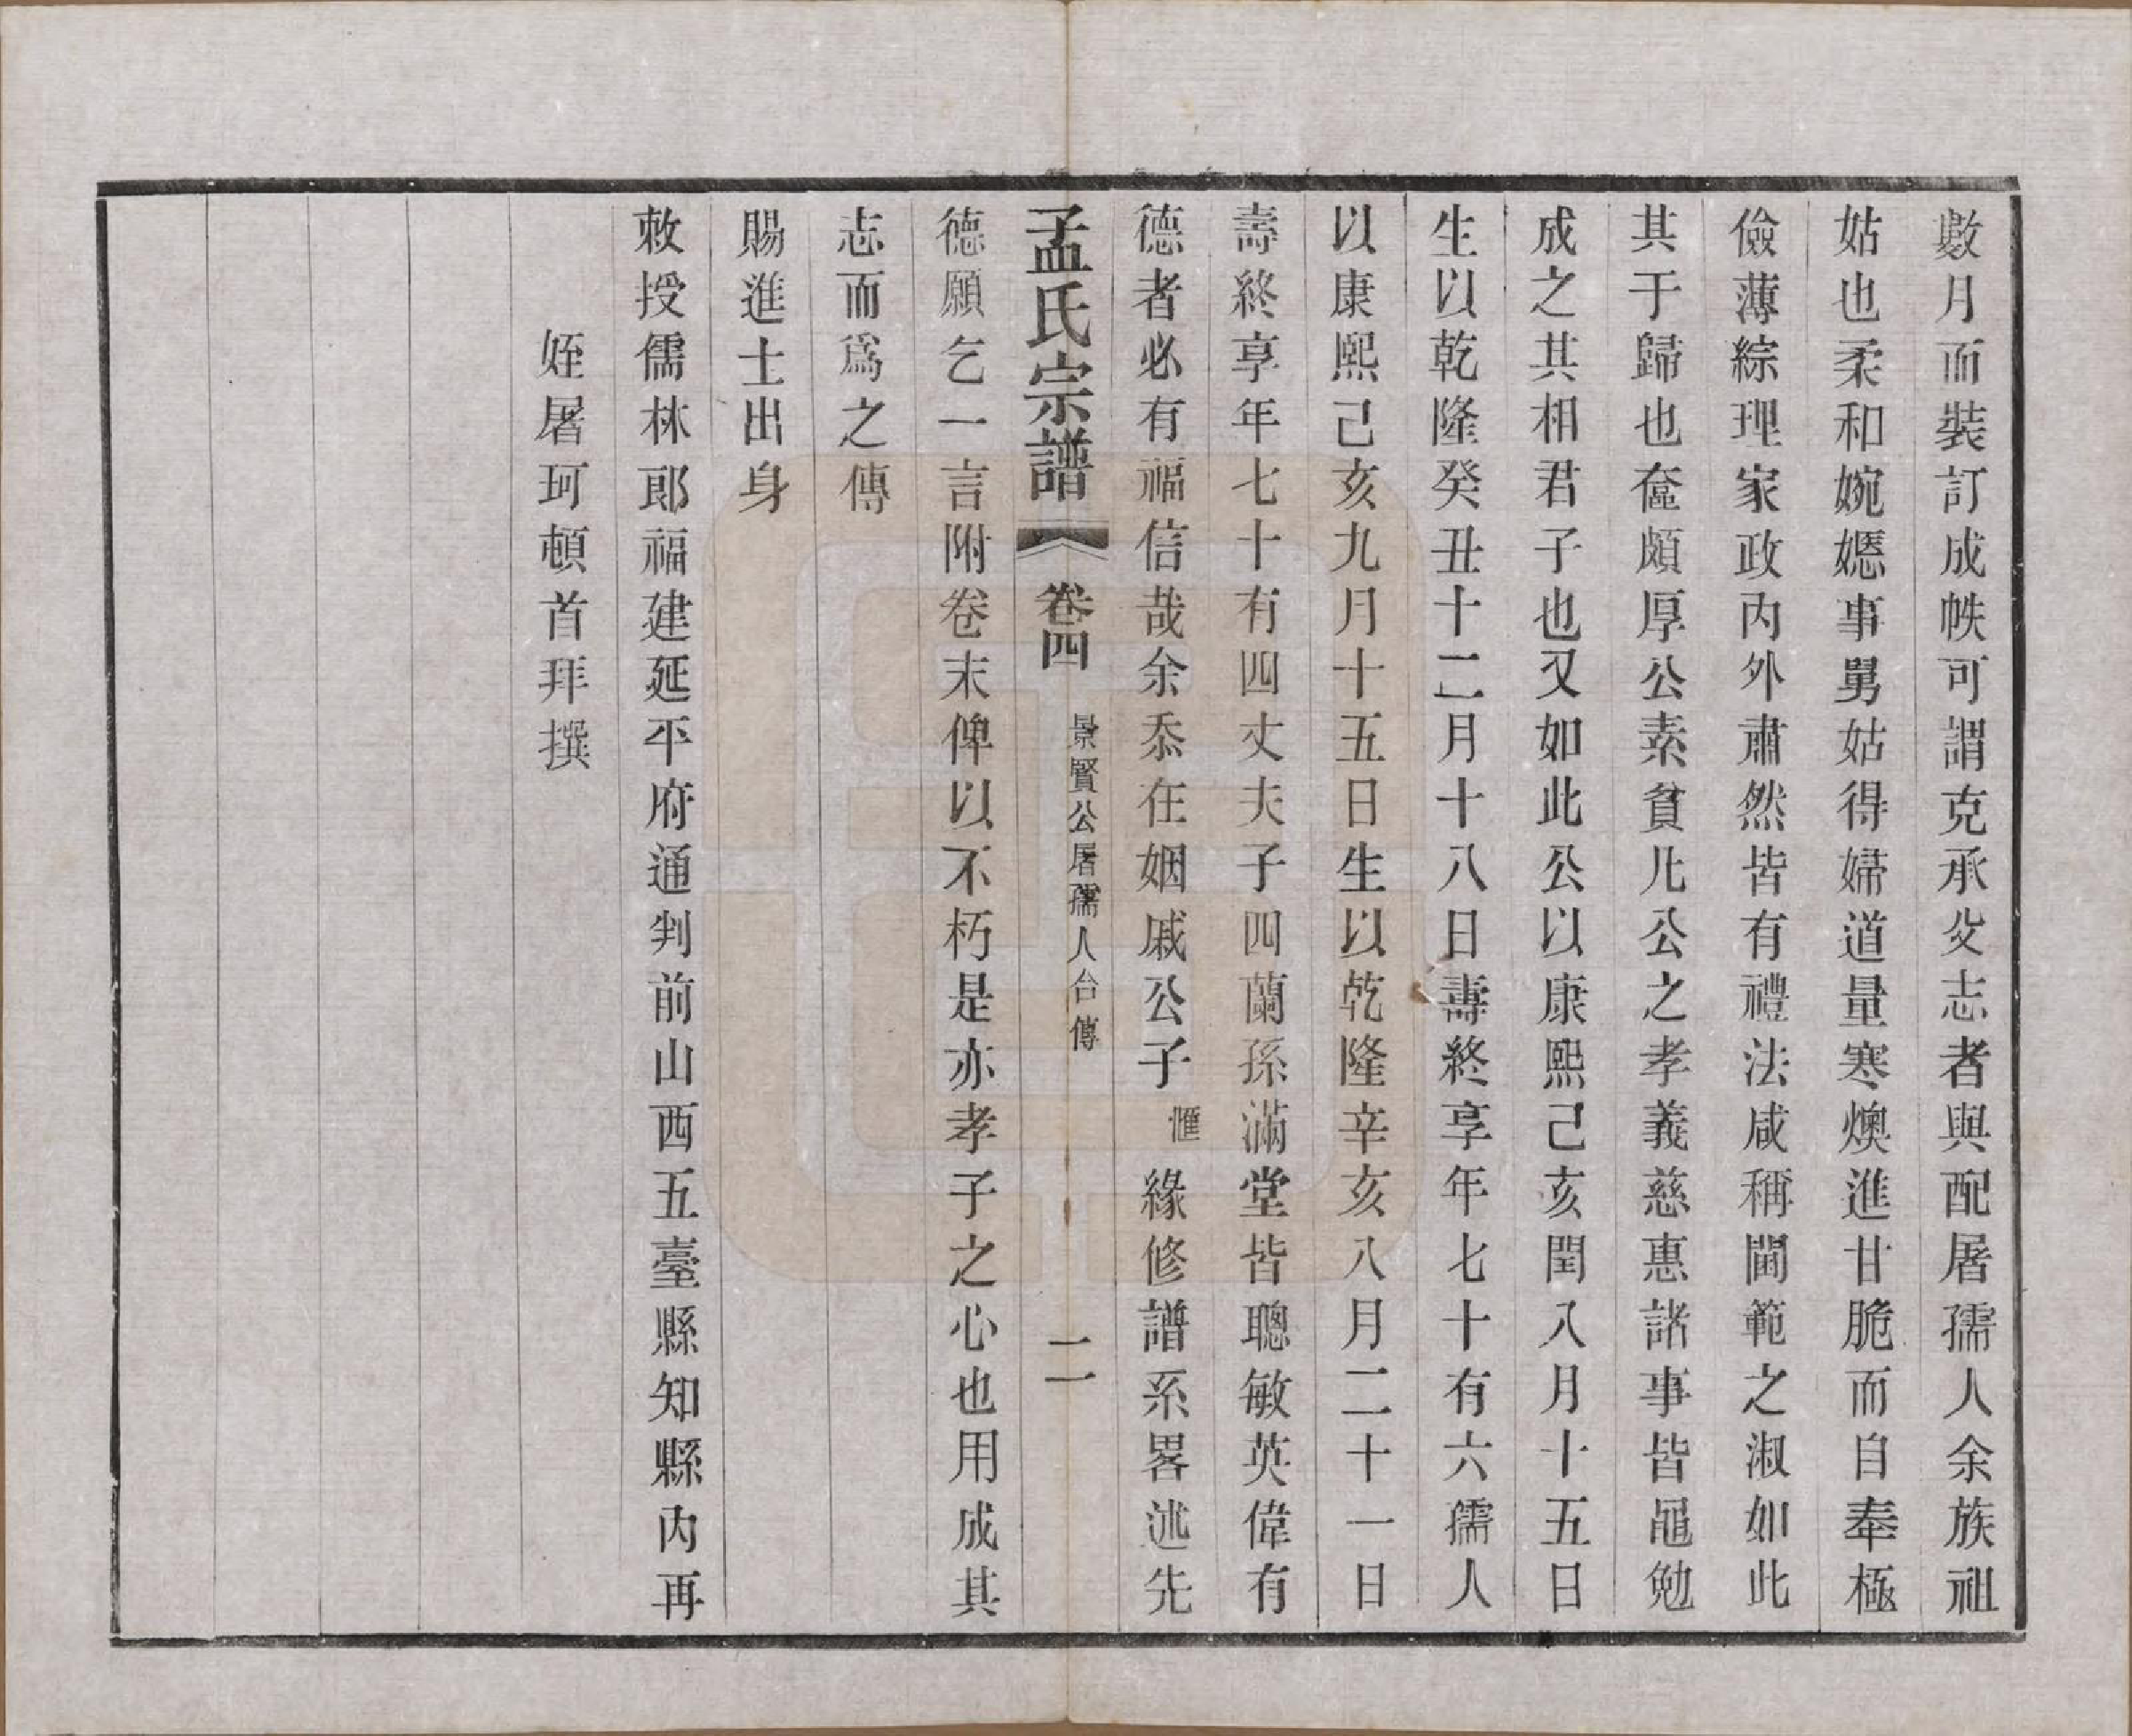 數月而裝訂成帙可謂克承父志者與配屠孺人余族祖
姑也柔和婉嬺事舅姑得婦道量寒燠進甘脆而自奉極
儉薄綜理家政內外肅然皆有禮法咸稱閫範之淑如此
其于歸也奩頗厚公素貧凡公之孝義慈惠諸事皆黽勉
成之其相君子也又如此公以康熙己亥閏八月十五日
生以乾隆癸丑十二月十八日壽終享年七十有六孺人
以康熙己亥九月十五日生以乾隆辛亥八月二十一日
壽終享年七十有四丈夫子四蘭孫滿堂皆聰敏英偉有
德者必有福信哉余忝在姻戚公子 匯 緣修譜系畧述先
孟氏宗譜 卷四 景賢公屠孺人合傳 二
德願乞一言附卷末俾以不朽是亦孝子之心也用成其
志而爲之傳
賜進士出身
敕授儒林郎福建延平府通判前山西五臺縣知縣內再
姪屠珂頓首拜撰